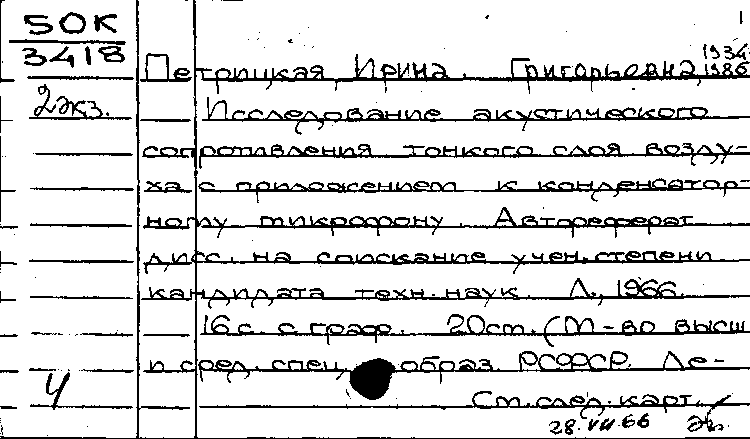 50К
3418
1
Петрицкая, Ирина Григорьевна, 1934
1986
2экз.
Исследование акустического
сопротивления тонкого слоя возду-
ха с приложением к конденсатор-
ному микрофону. Автореферат
дисс. на соискание учен. степени
кандидата техн. наук. Л., 1966.
16 с. с граф. 20 см. (М-во высш
и сред. спец. образ. РСФСР. Ле-
Ч
См. след. карт.
28.VII.66